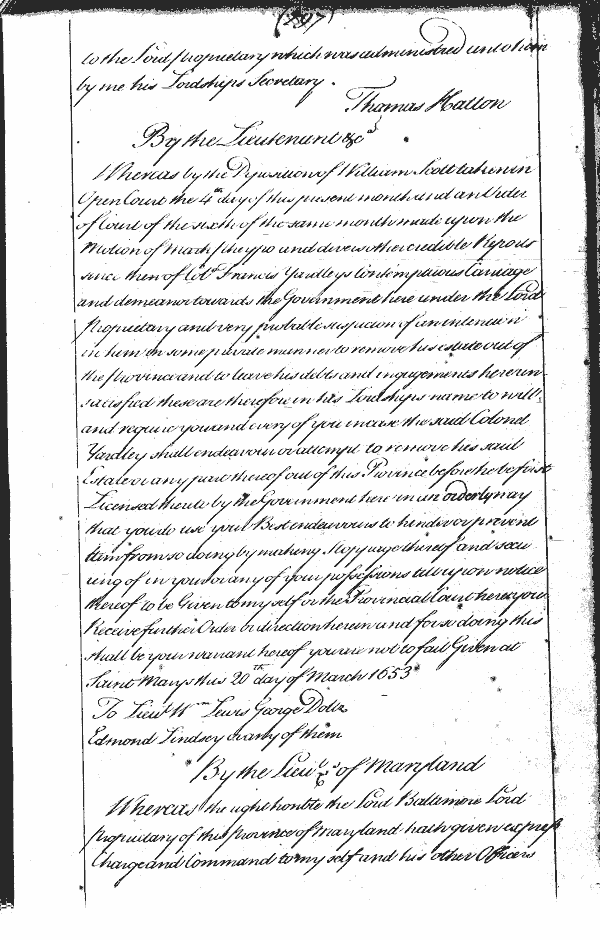 (297)
to the Lord Proprietary which was administred unto him
by me his Lordships Secretary.
Thomas Hatton
By the Lieutenant &c
Whereas by the Deposition of William Scott taken in
Open Court the 4th day of this present month and an Order
of Court of the sixth of the same month made upon the
Motion of Mark Pheypo and divers other credible Reports
since then of Coll Francis Yardleys Contemptuous Carriage
and demeanor towards the Government here under the Lord
Proprietary and very probable suspicion of an intention
in him in some private manner to remove his estate out of
the Province and to leave his debts and ingagements here un
satisfied these are therefore in his Lordships name to will
and require you and every of you in case the said Colonel
Yardley shall endeavour or attempt to remove his said
Estate or any part thereof out of this Province before he be first
Licensed thereto by the Government here in an orderly way
that you do use your Best endeavours to hinder or prevent
him from so doing by making Stoppage thereof and secu
ring of in your or any of your possessions till upon notice
thereof to be Given to my self or the Provincial Court here you
Receive further Order or direction herein and for so doing this
shall be your warrant hereof you are not to fail Given at
Saint Marys this 20th day of March 1653
To Lieut Wm Lewis George Dolt
Edmond Lindsey or any of them
By the Lieut &c of Maryland
Whereas the right honble the Lord Baltimore Lord
Proprietary of this Province of Maryland hath given express
Charge and Command to my self and his other Officers